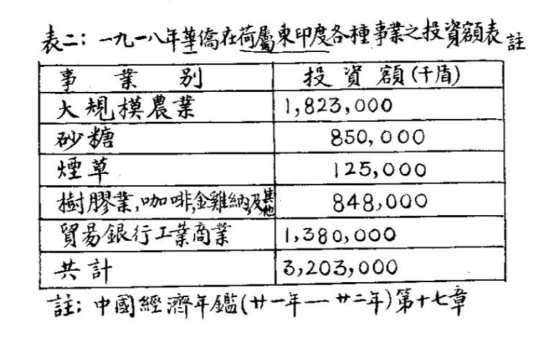 表二：一九一八年華僑在荷屬東印度各種事業之投資額表註
事業別 投資額(千盾)
大規模農業 1,823,000
砂糖 850,000
煙草 125,000
樹膠業,咖啡,金雞納及其他 848,000
貿易銀行工業商業 1,380,000
共計 3,203,000
註：中國經濟年鑑(廿一年—廿二年)第十七章